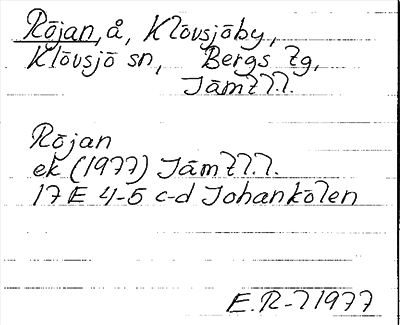 Röjan, å, Klövsjöby,
Klövsjö sn, Bergs tg,
Jämtl.l.
Röjan
ek (1977) Jämtl.l.
17 E 4-5 c-d Johankölen
E.R-l 1977